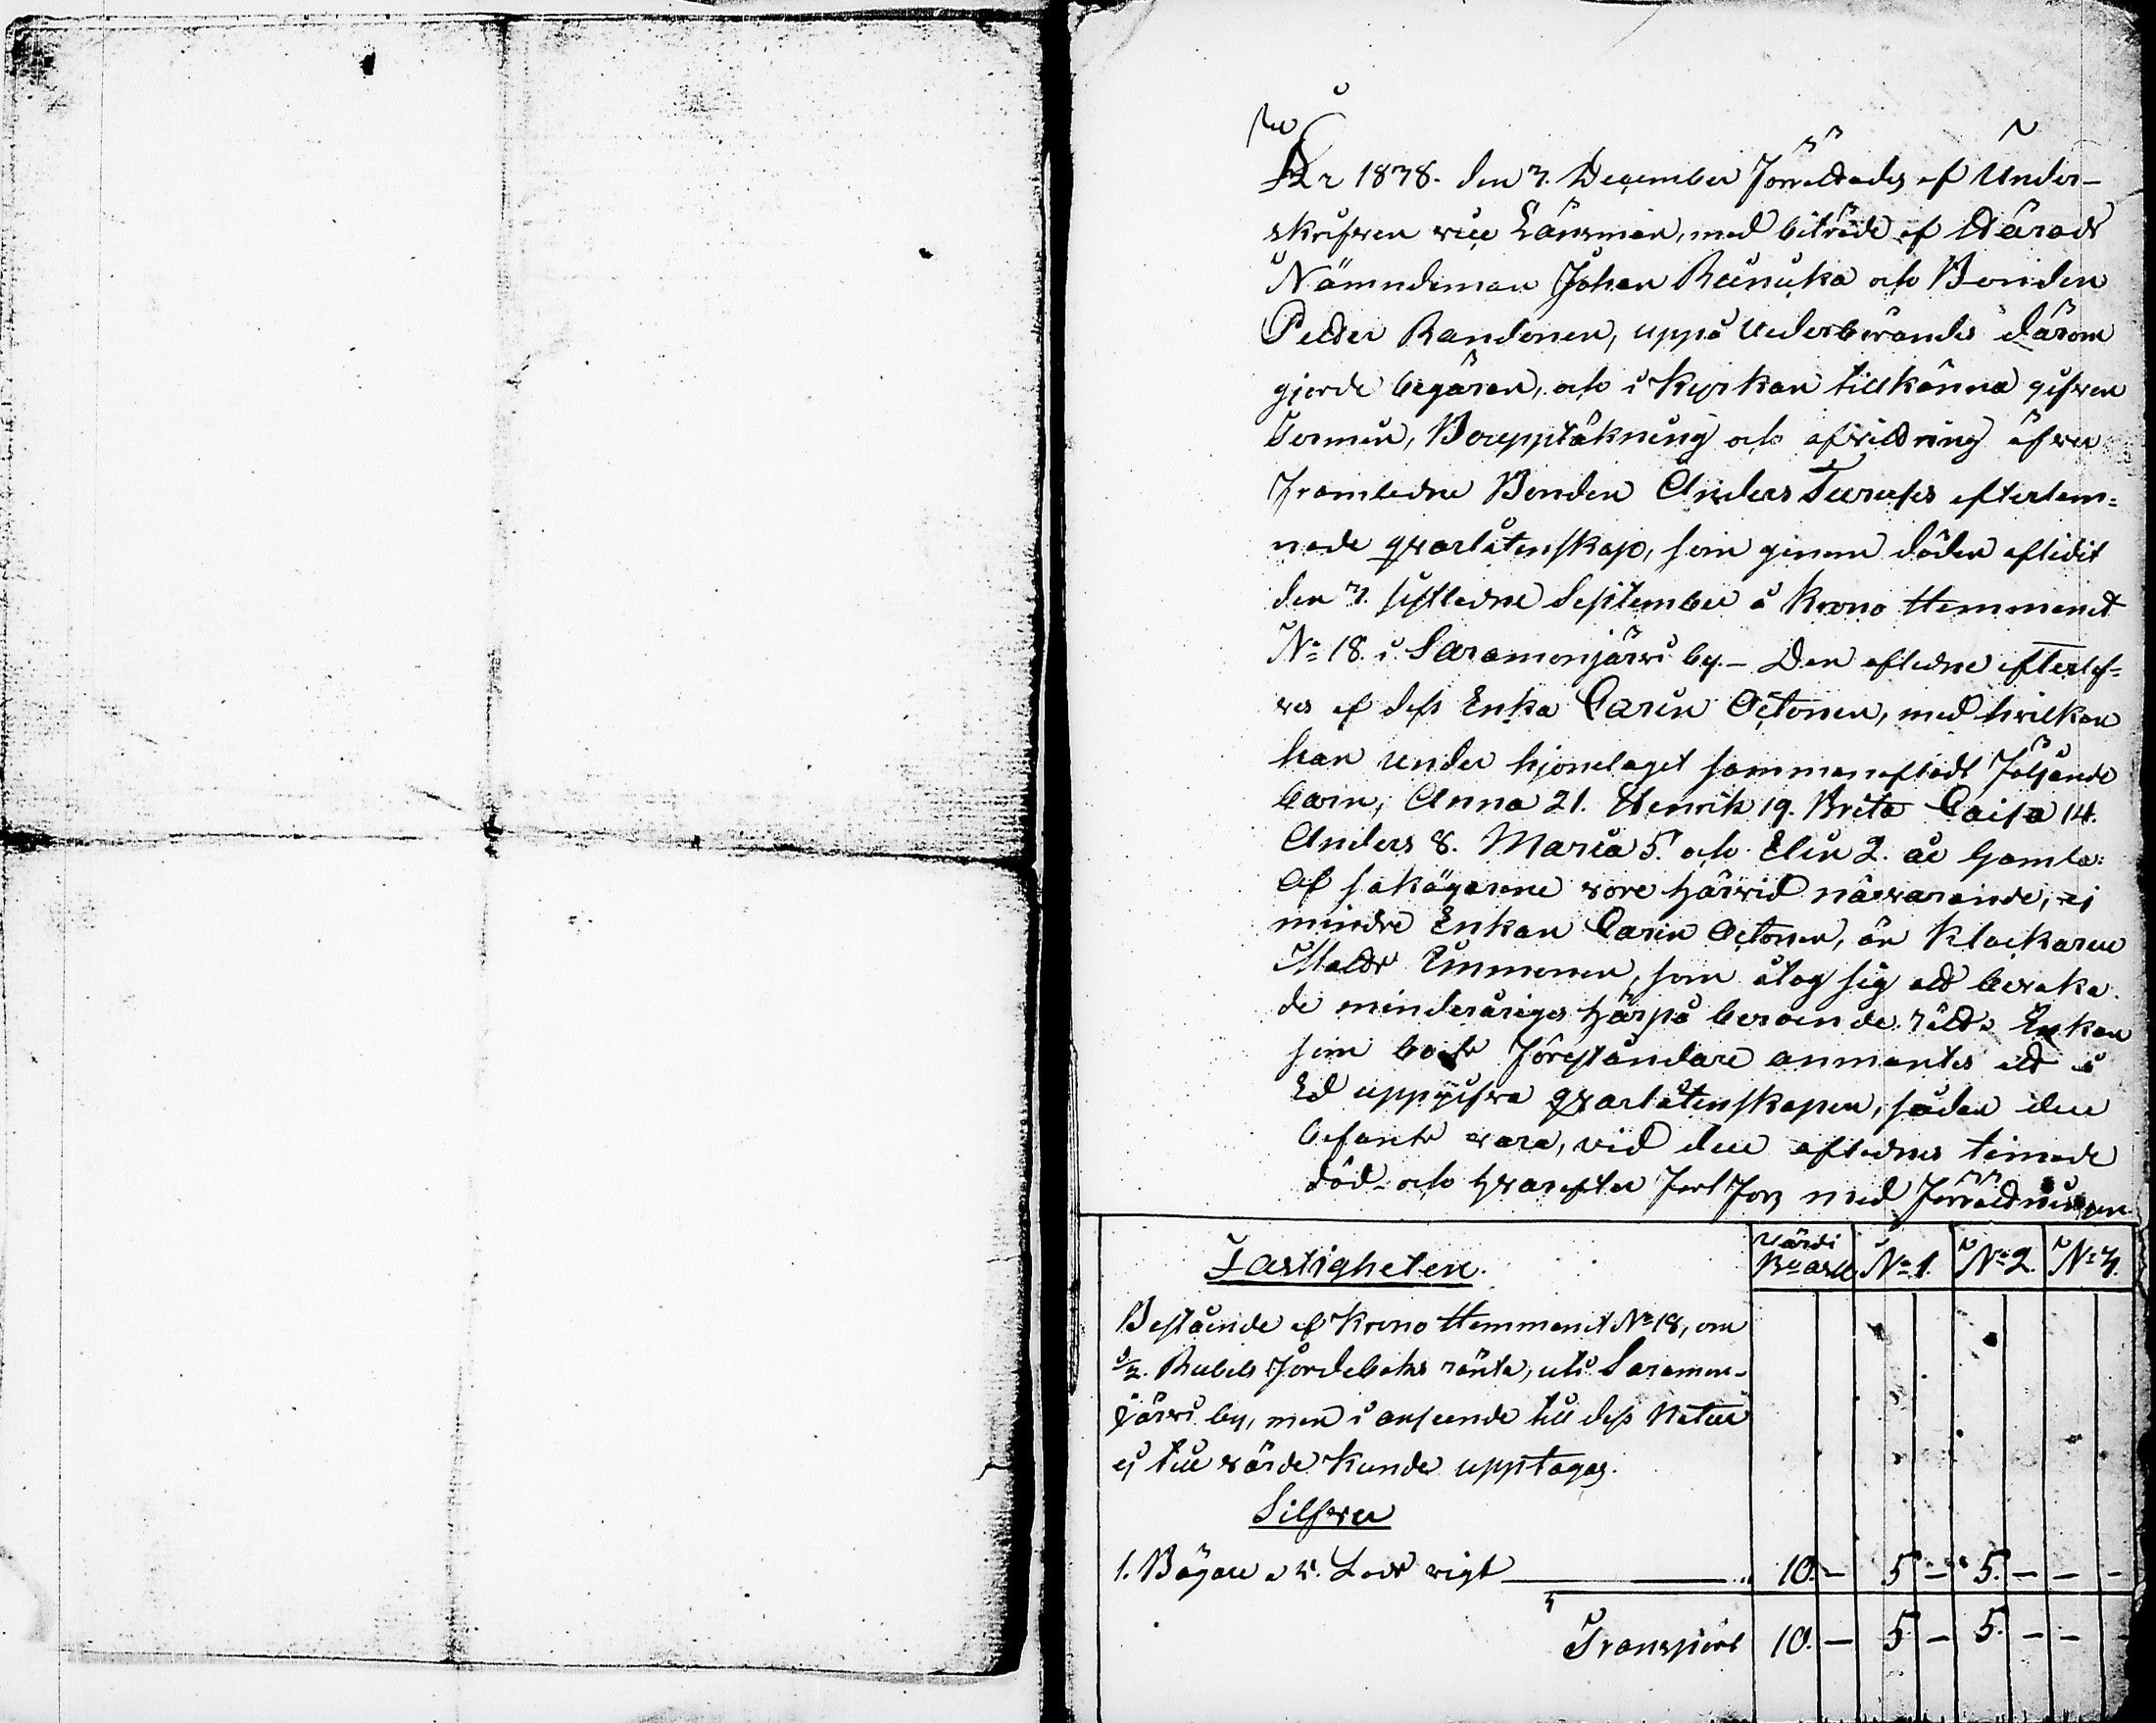 År 1838. den 3. December förrättades af Under-
skrifven vice Länsman, med biträde af Härads
Nämndeman Johan Ruinuka och Bonden
Petter Randonen, uppå vederbörandes därom
gjorde begäran, och i Kyrkan tillkänna gifven
Termin, Bouppteckning och afvittring äfver
framledne Bonden Anders Turuses efterlem=
nade qvarlåtenskap, som genom döden aflidit
den 3. sistledne September å Krono Hemmanet
No 18. i Saramonjärvi by. – Den aflidne efterlef-
ves af dess Enka Carin Oetonen, med hvilken
han under hjonelaget sammanafladt följande
barn, Anna 21. Henrik 19. Brita Caisa 14.
Anders 8. Maria 5. och Elin 2. år gamla:
Af sakägarene vore härvid närvarande, ej
mindre Enkan Carin Oetonen, än Klockaren
Matts Immonen, som åtog sig att bevaka
de minderårigas härpå beroende rätt. Enkan
som boets föreståndare anmantes att å
Ed uppgifva qvarlåtenskapen, sådan den
befants vara, vid den aflidnes timade
död – och hvarefter fortfors med förrättningen
Fastigheten.
Värdi
B:o Ass. No 1. No 2. No 3.
Bestående af Krono Hemmanet No 18, om
1/2. Rubels Jordeboks ränta, uti Saramon-
järvi by, men i anseende till dess Natur
ej till värde kunde upptagas.
Silfver
1. Bägare a 5. Lods vigt 10. – 5 – 5. – – –
Transport 10. – 5. – 5. – – –